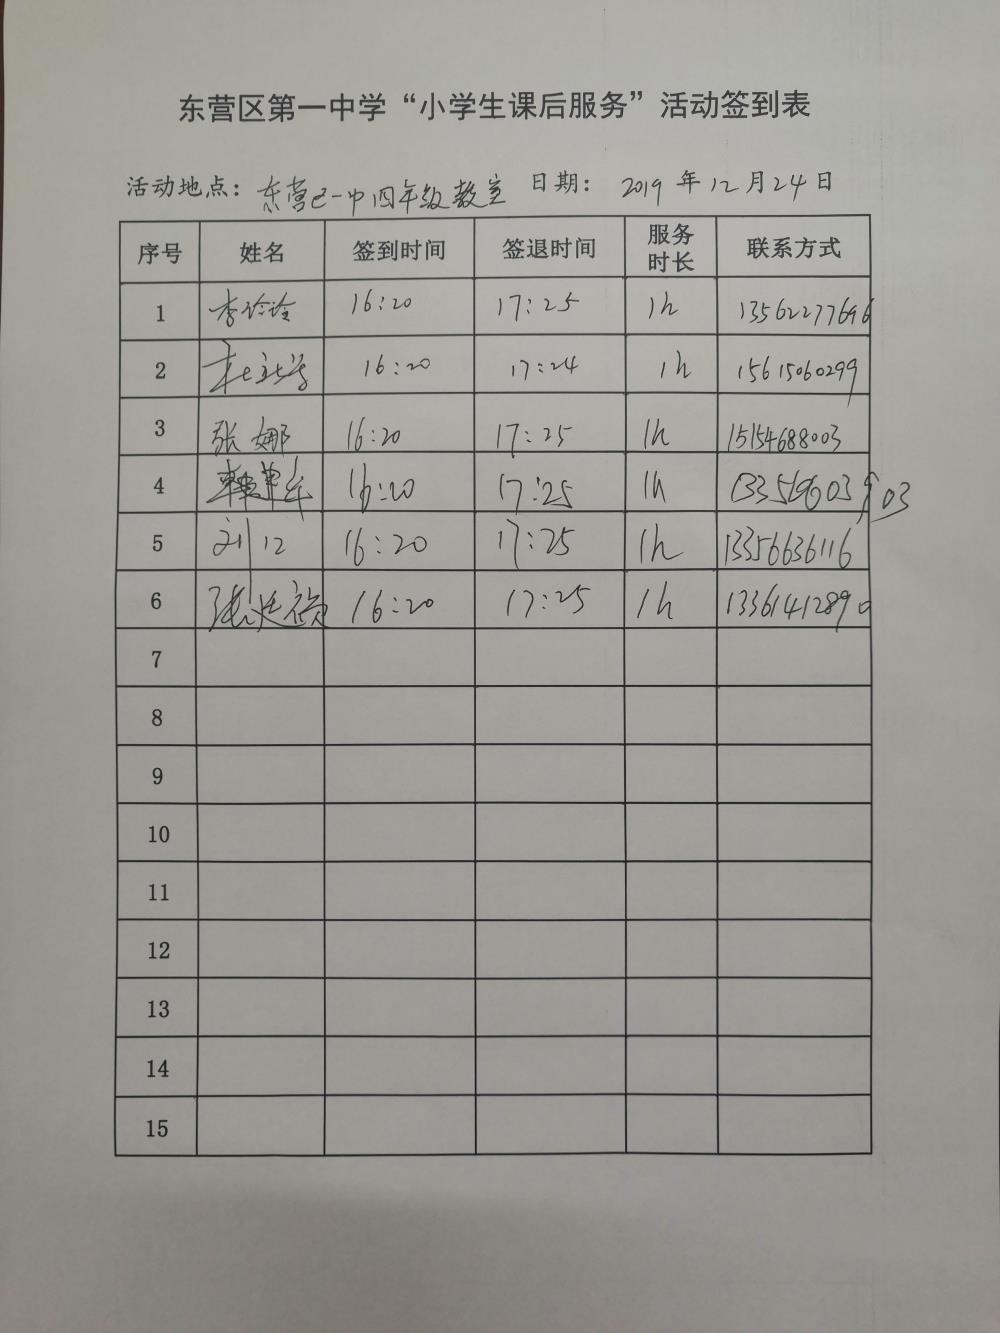 东营区第一中学“小学生课后服务”活动签到表
活动地点：东营区一中四年级教室 日期：2019年12月24日
序号 姓名 签到时间 签退时间 服务时长 联系方式
1 16:20 17:25 1h 13562277696
2 16:20 17:24 1h 15615060299
3 张娜 16:20 17:25 1h 15154688003
4 16:20 17:25 1h
5 16:20 17:25 1h 13356636116
6 16:20 17:25 1h 13361412890
7
8
9
10
11
12
13
14
15